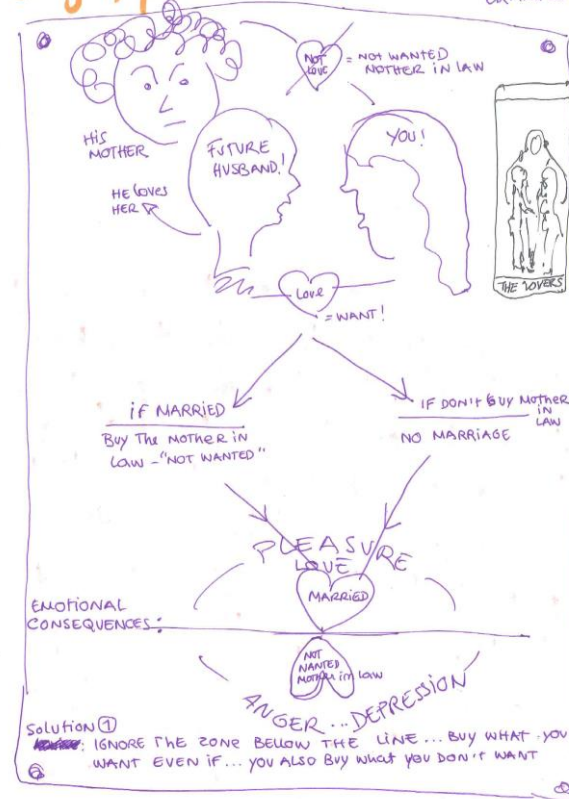 NOT
LOVE
= NOT WANTED
MOTHER IN LAW
HIS
MOTHER
FUTURE
HUSBAND!
YOU!
HE LOVES
HER
THE LOVERS
Love
= WANT!
IF MARRIED
BUY THE MOTHER IN
LAW - "NOT WANTED"
IF DON'T BUY MOTHER
IN
LAW
NO MARRIAGE
PLEASURE
LOVE
MARRIED
EMOTIONAL
CONSEQUENCES:
NOT
WANTED
MOTHER in law
ANGER ... DEPRESSION
Solution 1
: IGNORE THE ZONE BELLOW THE LINE ... BUY WHAT YOU
WANT EVEN IF ... YOU ALSO BUY what you DON'T WANT